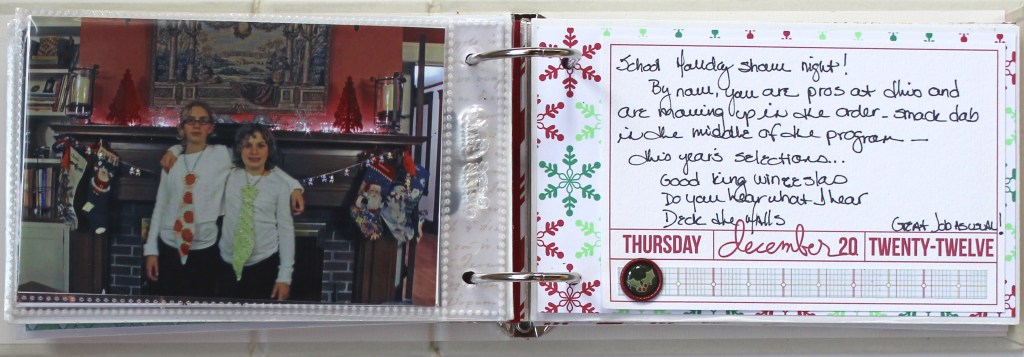 School Holiday show night!
By now, you are pros at this and
are moving up in the order - smack dab
in the middle of the program -
this year's selections...
Good King Winceslas
Do you hear what I hear
Deck the Halls
Great Job as usual!
THURSDAY december 20 TWENTY-TWELVE